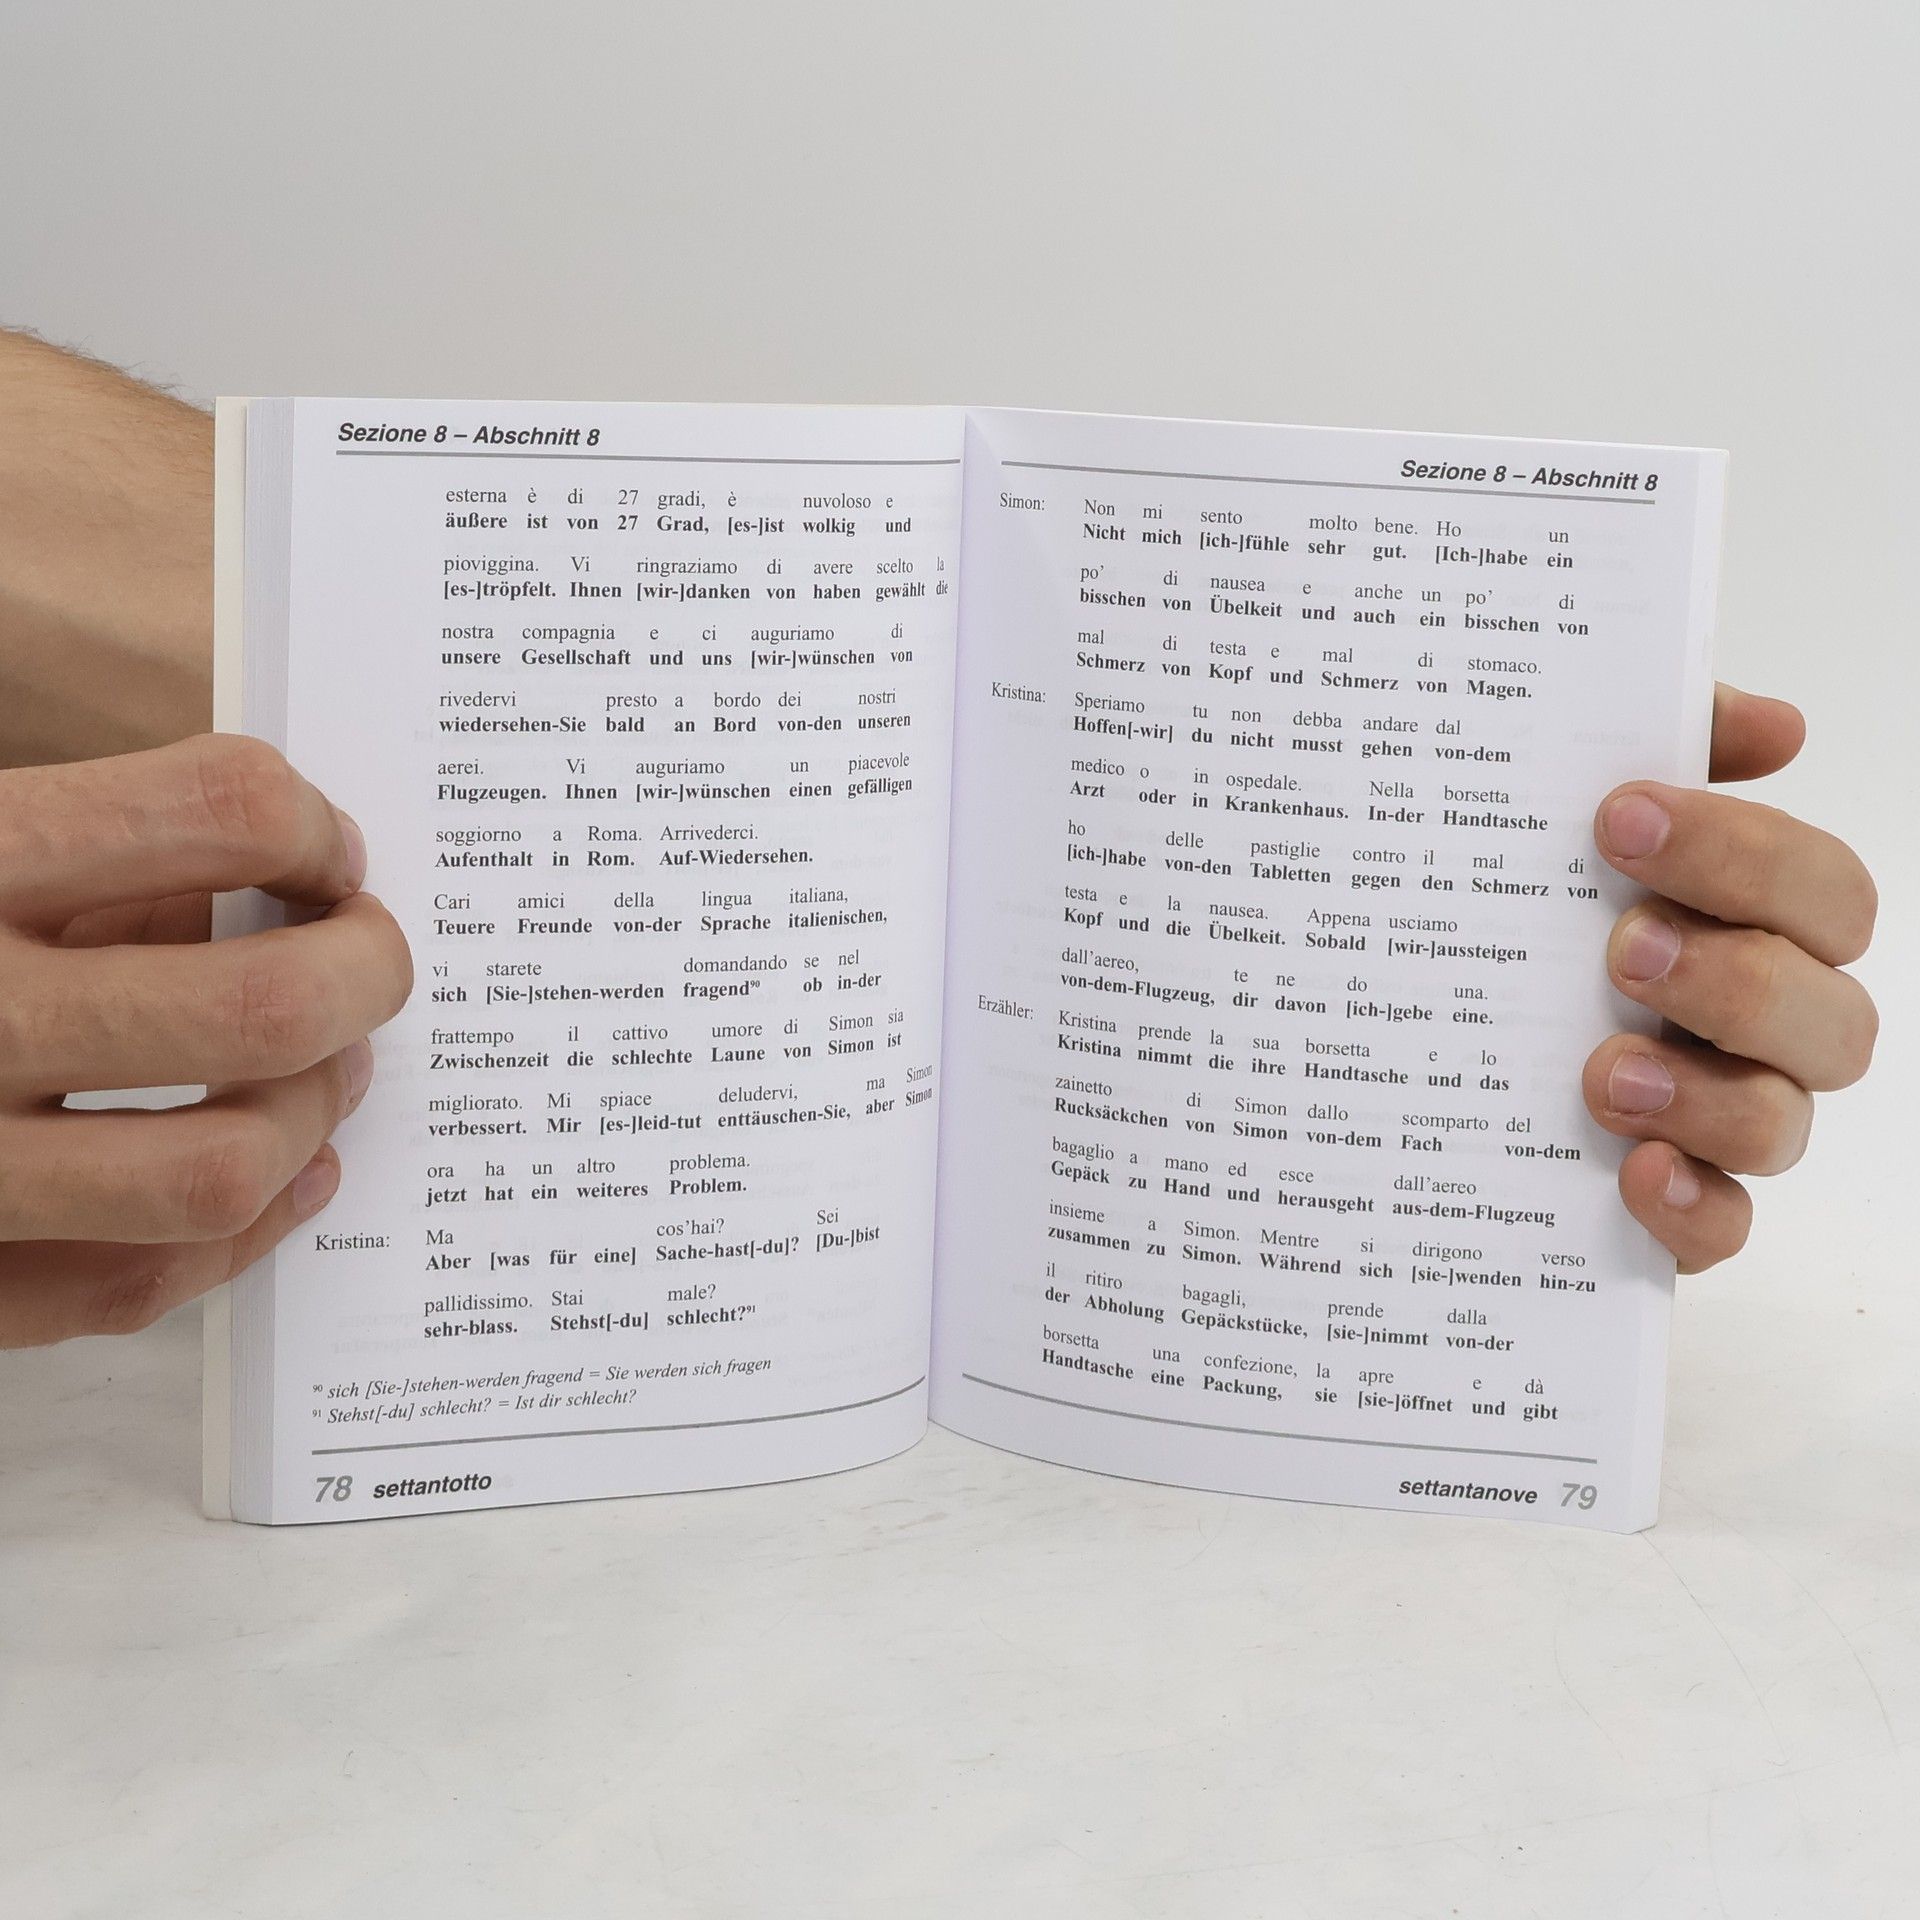 Sezione 8 – Abschnitt 8
esterna è di 27 gradi, è nuvoloso e
äußere ist von 27 Grad, [es-]ist wolkig und
pioviggina. Vi ringraziamo di avere scelto la
[es-]tröpfelt. Ihnen [wir-]danken von haben gewählt die
nostra compagnia e ci auguriamo di
unsere Gesellschaft und uns [wir-]wünschen von
rivedervi presto a bordo dei nostri
wiedersehen-Sie bald an Bord von-den unseren
aerei. Vi auguriamo un piacevole
Flugzeugen. Ihnen [wir-]wünschen einen gefälligen
soggiorno a Roma. Arrivederci.
Aufenthalt in Rom. Auf-Wiedersehen.
Cari amici della lingua italiana,
Teuere Freunde von-der Sprache italienischen,
vi starete domandando se nel
sich [Sie-]stehen-werden fragend⁹⁰ ob in-der
frattempo il cattivo umore di Simon sia
Zwischenzeit die schlechte Laune von Simon ist
migliorato. Mi spiace deludervi, ma Simon
verbessert. Mir [es-]leid-tut enttäuschen-Sie, aber Simon
ora ha un altro problema.
jetzt hat ein weiteres Problem.
Kristina: Ma cos'hai? Sei
Aber [was für eine] Sache-hast[-du]? [Du-]bist
pallidissimo. Stai male?
sehr-blass. Stehst[-du] schlecht?⁹¹
⁹⁰ sich [Sie-]stehen-werden fragend = Sie werden sich fragen
⁹¹ Stehst[-du] schlecht? = Ist dir schlecht?
78 settantotto
Sezione 8 – Abschnitt 8
Simon: Non mi sento molto bene. Ho un
Nicht mich [ich-]fühle sehr gut. [Ich-]habe ein
po' di nausea e anche un po' di
bisschen von Übelkeit und auch ein bisschen von
mal di testa e mal di stomaco.
Schmerz von Kopf und Schmerz von Magen.
Kristina: Speriamo tu non debba andare dal
Hoffen[-wir] du nicht musst gehen von-dem
medico o in ospedale. Nella borsetta
Arzt oder in Krankenhaus. In-der Handtasche
ho delle pastiglie contro il mal di
[ich-]habe von-den Tabletten gegen den Schmerz von
testa e la nausea. Appena usciamo
Kopf und die Übelkeit. Sobald [wir-]aussteigen
dall'aereo, te ne do una.
von-dem-Flugzeug, dir davon [ich-]gebe eine.
Erzähler: Kristina prende la sua borsetta e lo
Kristina nimmt die ihre Handtasche und das
zainetto di Simon dallo scomparto del
Rucksäckchen von Simon von-dem Fach von-dem
bagaglio a mano ed esce dall'aereo
Gepäck zu Hand und herausgeht aus-dem-Flugzeug
insieme a Simon. Mentre si dirigono verso
zusammen zu Simon. Während sich [sie-]wenden hin-zu
il ritiro bagagli, prende dalla
der Abholung Gepäckstücke, [sie-]nimmt von-der
borsetta una confezione, la apre e dà
Handtasche eine Packung, sie [sie-]öffnet und gibt
settantanove 79